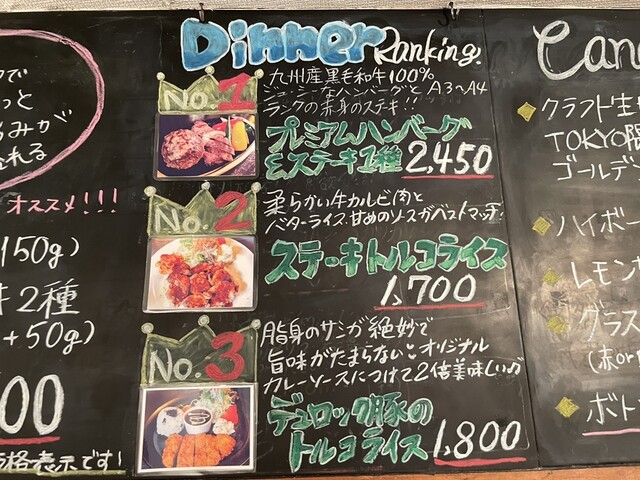 Dinner Ranking.
No.1
九州産黒毛和牛100%
ジューシーなハンバーグと A3〜A4
ランクの赤身のステキ!!
プレミアムハンバーグ
&ステーキ1種 2,450
No.2
柔らかい牛カルビ肉と
バターライス、甘めのソースがベストマッチ!
ステーキトルコライス
1,700
No.3
脂身のサシが絶妙で
旨味がたまらない オリジナル
カレーソースにつけて2倍美味しい
デュロック豚の
トルコライス 1,800
オススメ!!!
150g)
2種
+50g)
00
格表示です!
Can
クラフト生
TOKYO
ゴールデン
ハイボー
レモン
グラス
(赤or
ボト